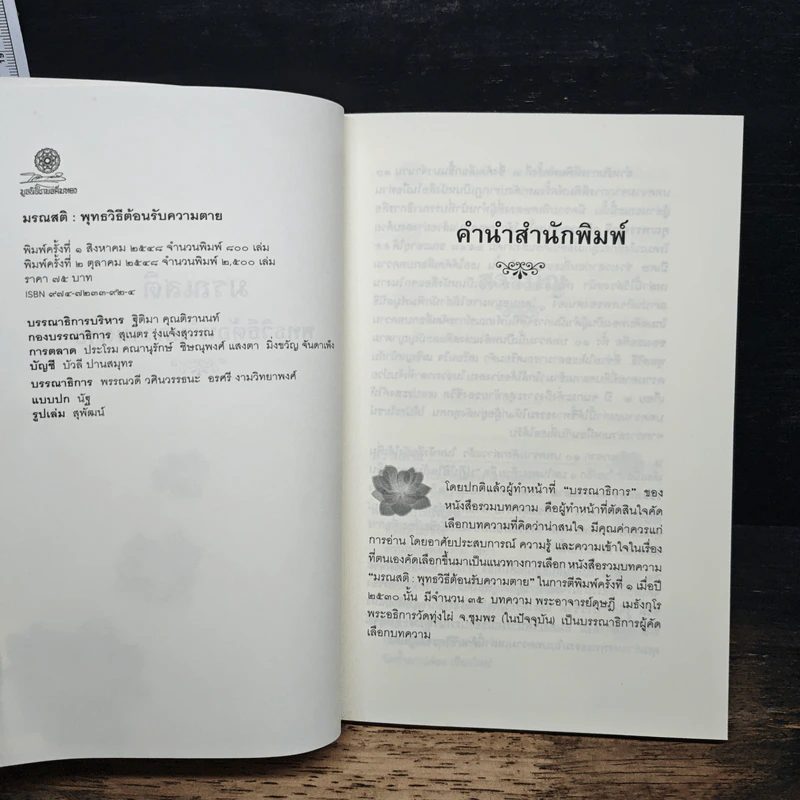 มูลนิธิโกมลคีมทอง
มรณสติ : พุทธวิธีต้อนรับความตาย
พิมพ์ครั้งที่ ๑ สิงหาคม ๒๕๔๘ จำนวนพิมพ์ ๘๐๐ เล่ม
พิมพ์ครั้งที่ ๒ ตุลาคม ๒๕๔๘ จำนวนพิมพ์ ๒,๕๐๐ เล่ม
ราคา ๗๕ บาท
ISBN ๙๗๔-๗๒๓๓-๙๒-๔
บรรณาธิการบริหาร ฐิติมา คุณติรานนท์
กองบรรณาธิการ สุเนตร รุ่งแจ้งสุวรรณ
การตลาด ประโรม คณานุรักษ์ ชิษณุพงศ์ แสงตา มิ่งขวัญ จันดาเพ็ง
บัญชี บัวลี ปานสมุทร
บรรณาธิการ พรรณวดี วศินวรรธนะ อรศรี งามวิทยาพงศ์
แบบปก นัฐ
รูปเล่ม สุพัฒน์
คำนำสำนักพิมพ์
โดยปกติแล้วผู้ทำหน้าที่ "บรรณาธิการ" ของ
หนังสือรวมบทความ คือผู้ทำหน้าที่ตัดสินใจคัด
เลือกบทความที่คิดว่าน่าสนใจ มีคุณค่าควรแก่
การอ่าน โดยอาศัยประสบการณ์ ความรู้ และความเข้าใจในเรื่อง
ที่ตนเองคัดเลือกขึ้นมาเป็นแนวทางการเลือก หนังสือรวมบทความ
"มรณสติ : พุทธวิธีต้อนรับความตาย" ในการตีพิมพ์ครั้งที่ ๑ เมื่อปี
๒๕๓๐ นั้น มีจำนวน ๓๕ บทความ พระอาจารย์ดุษฎี เมธังกุโร
พระอธิการวัดทุ่งไผ่ จ.ชุมพร (ในปัจจุบัน) เป็นบรรณาธิการผู้คัด
เลือกบทความ